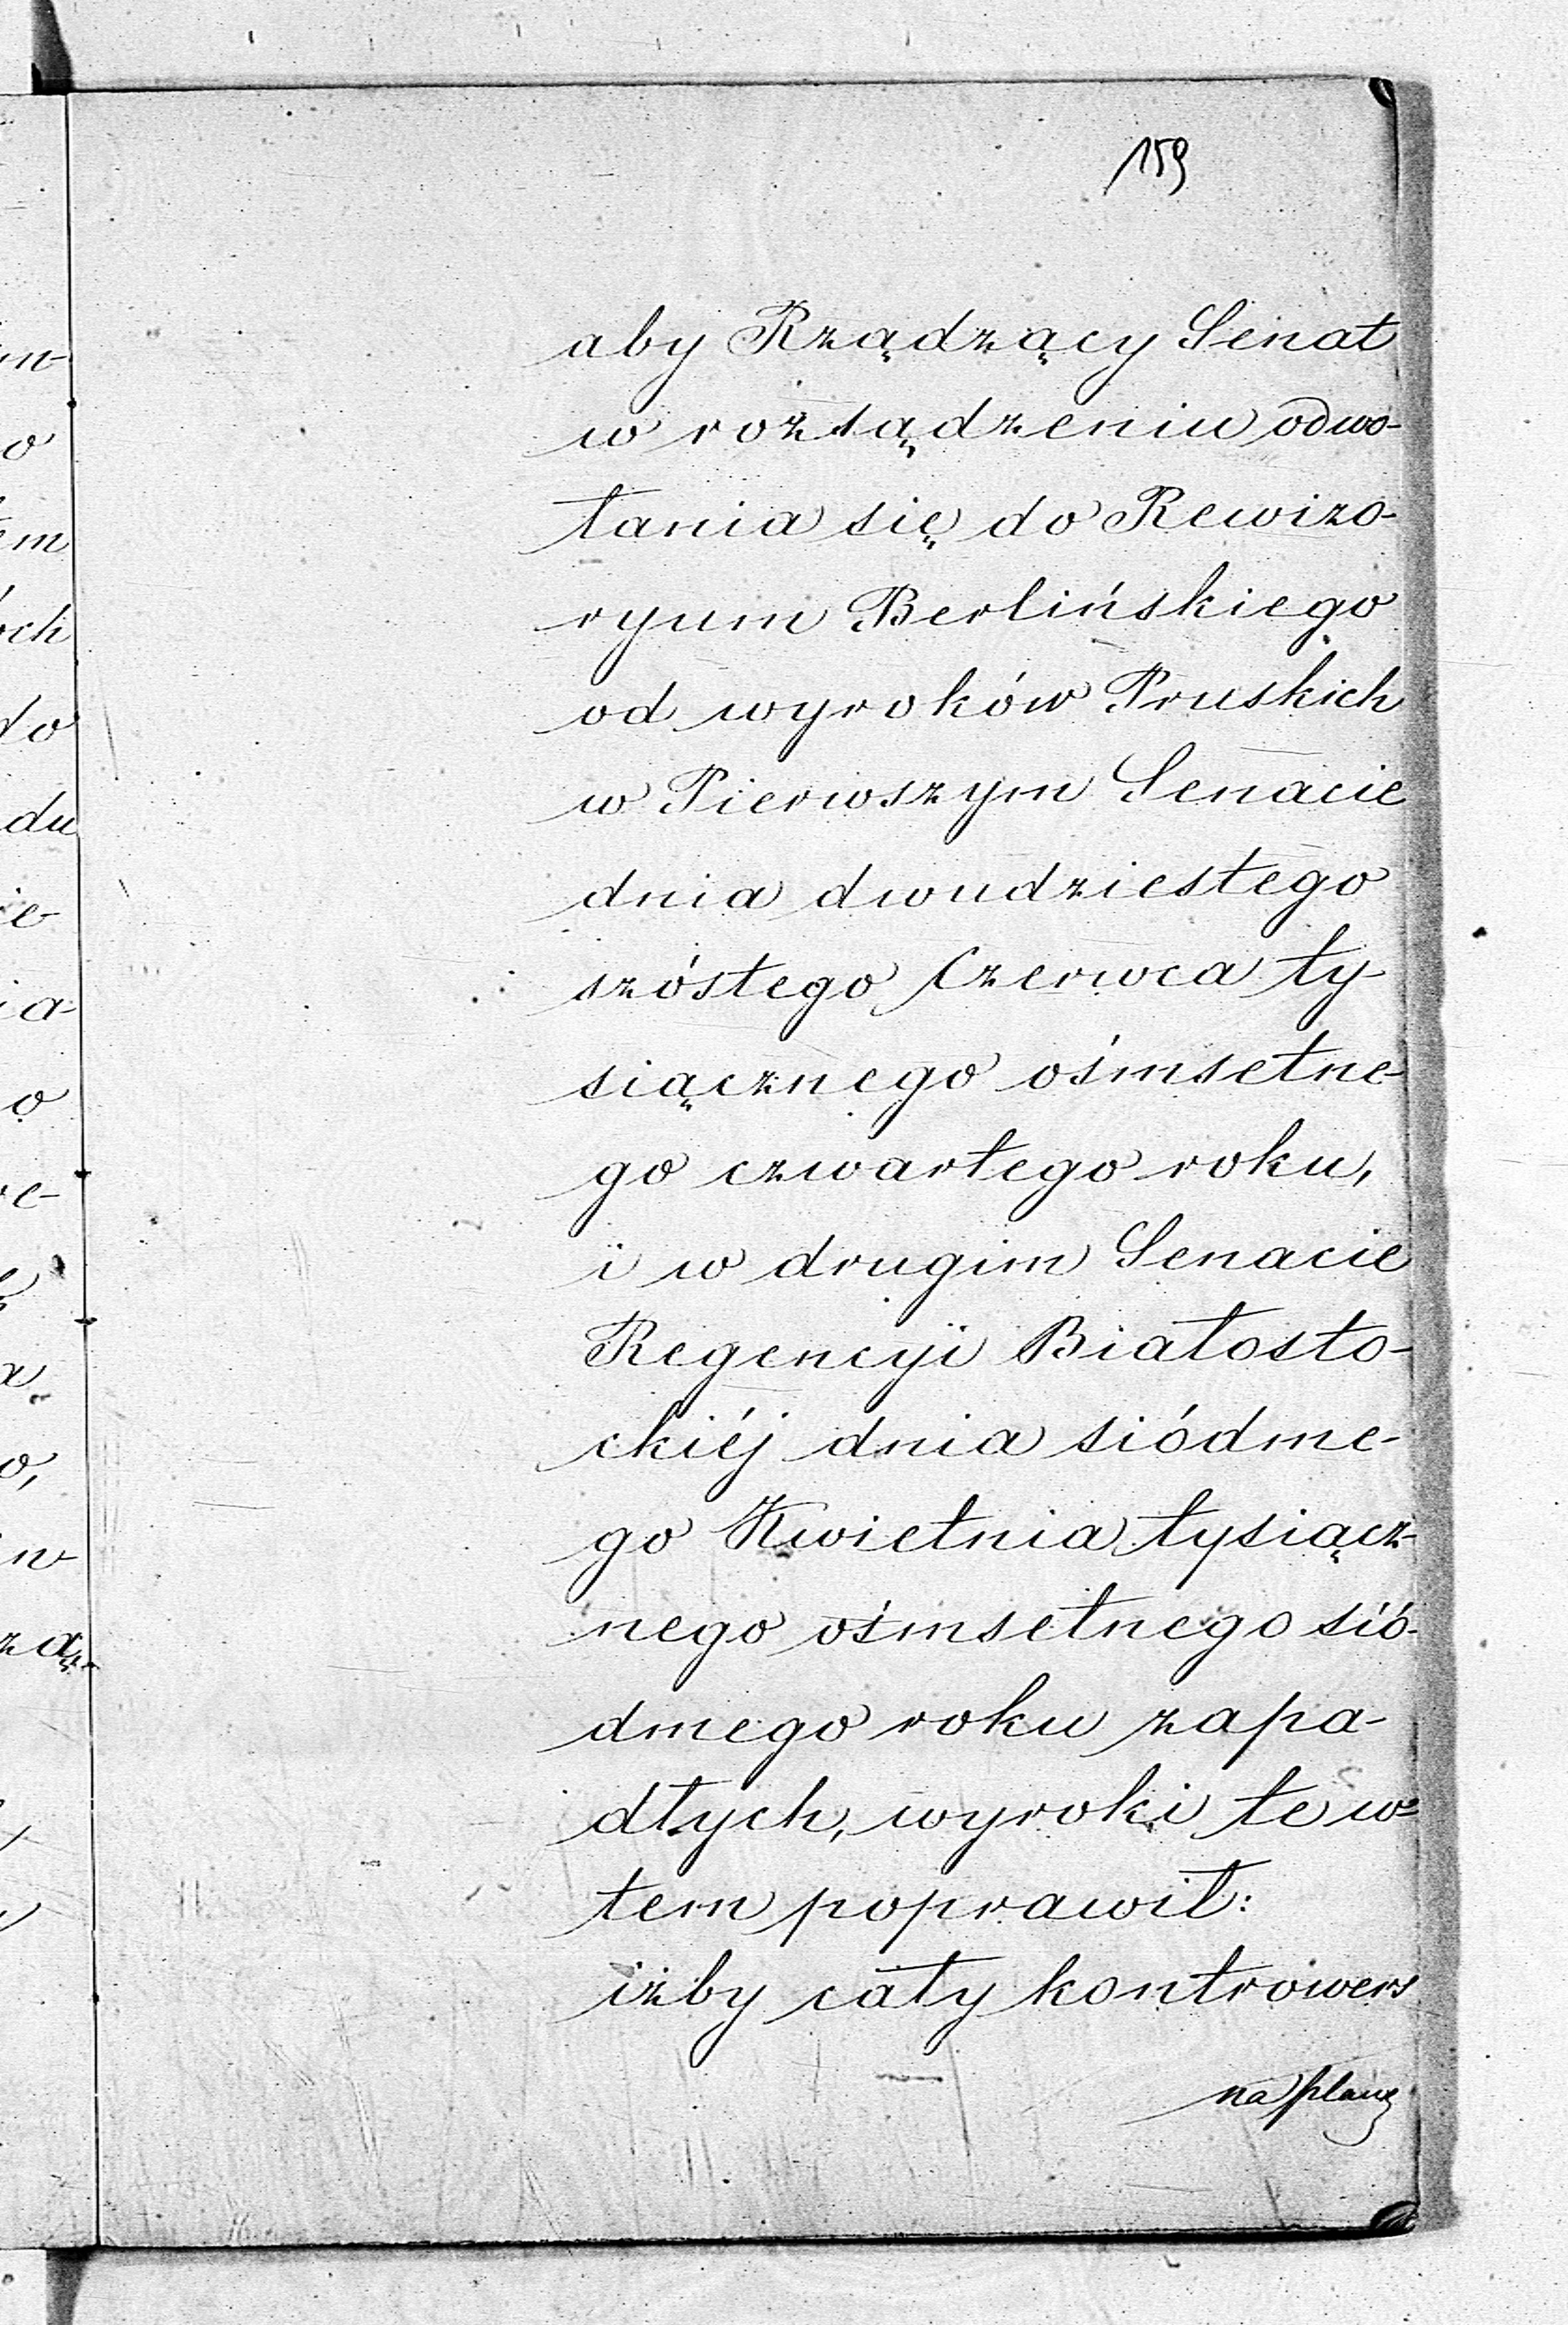 159
aby Rządzący Senat
w rozsądzeniu odwo-
łania się do Rewizo-
ryum Berlińskiego
od wyroków Pruskich
w Pierwszym Senacie
dnia dwudziestego
szóstego Czerwca ty-
siącznego ośmsetne-
go czwartego roku,
i w drugim Senacie
Regencyi Białosto-
ckiéj dnia siódme-
go Kwietnia tysiącz-
nego ośmsetnego sió-
dmego roku zapa-
dłych, wyroki te w
tem poprawił:
iżby cały kontrowers
na